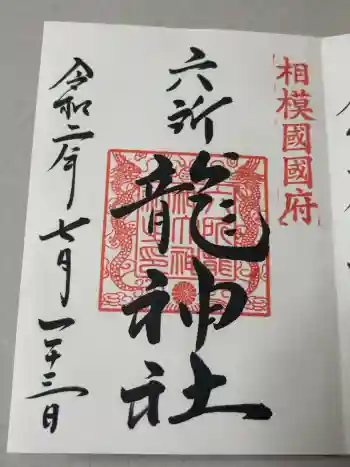 相模國國府
六所龍神社
令和二年七月二十三日